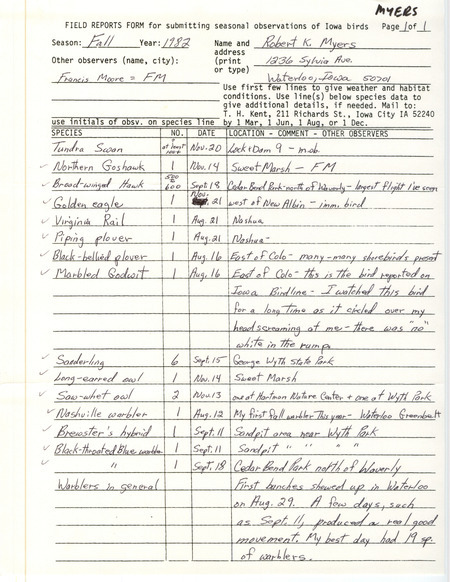 MYERS
FIELD REPORTS FORM for submitting seasonal observations of Iowa birds Page 1 of 1
Season: Fall Year: 1982 Name and Robert K. Myers
address
Other observers (name, city): (print 1236 Sylvia Ave.
or type)
Francis Moore = FM Waterloo, Iowa 50701
Use first few lines to give weather and habitat
conditions. Use line(s) below species data to
give additional details, if needed. Mail to:
T. H. Kent, 211 Richards St., Iowa City IA 52240
use initials of obsv. on species line by 1 Mar, 1 Jun, 1 Aug, or 1 Dec.
SPECIES NO. DATE LOCATION - COMMENT - OTHER OBSERVERS
Tundra Swan at least Nov. 20 Lock + Dam 9 - m.ob.
✓ Northern Goshawk 1 Nov. 14 Sweet Marsh - FM
✓ Broad-winged Hawk 500 to 600 Sept 18 Cedar Bend Park-north of Waverly - largest flight I've seen
✓ Golden eagle 1 Nov. 21 west of New Albin - imm. bird
✓ Virginia Rail 1 Aug. 21 Nashua
✓ Piping plover 1 Aug. 21 Nashua -
✓ Black-bellied plover 1 Aug. 16 East of Colo - many-many shorebirds present
✓ Marbled Godwit 1 Aug. 16 East of Colo - this is the bird reported on
Iowa Birdline - I watched this bird
for a long time as it circled over my
head screaming at me - there was "no"
white in the rump.
✓ Sanderling 6 Sept. 15 George Wyth State Park
✓ Long-earred owl 1 Nov. 14 Sweet Marsh
✓ Saw-whet owl 2 Nov. 13 one at Hartman Nature Center + one at Wyth Park
✓ Nashville warbler 1 Aug. 12 My first fall warbler this year - Waterloo Greenbelt
✓ Brewster's hybrid 1 Sept. 11 Sandpit area near Wyth Park
✓ Black-throated Blue warbler 1 Sept. 11 Sandpit " " " "
✓ " 1 Sept. 18 Cedar Bend Park north of Waverly
Warblers in general First bunches showed up in Waterloo
on Aug. 29. A few days, such
as Sept. 11, produced a real good
movement. My best day had 19 sp.
of warblers.